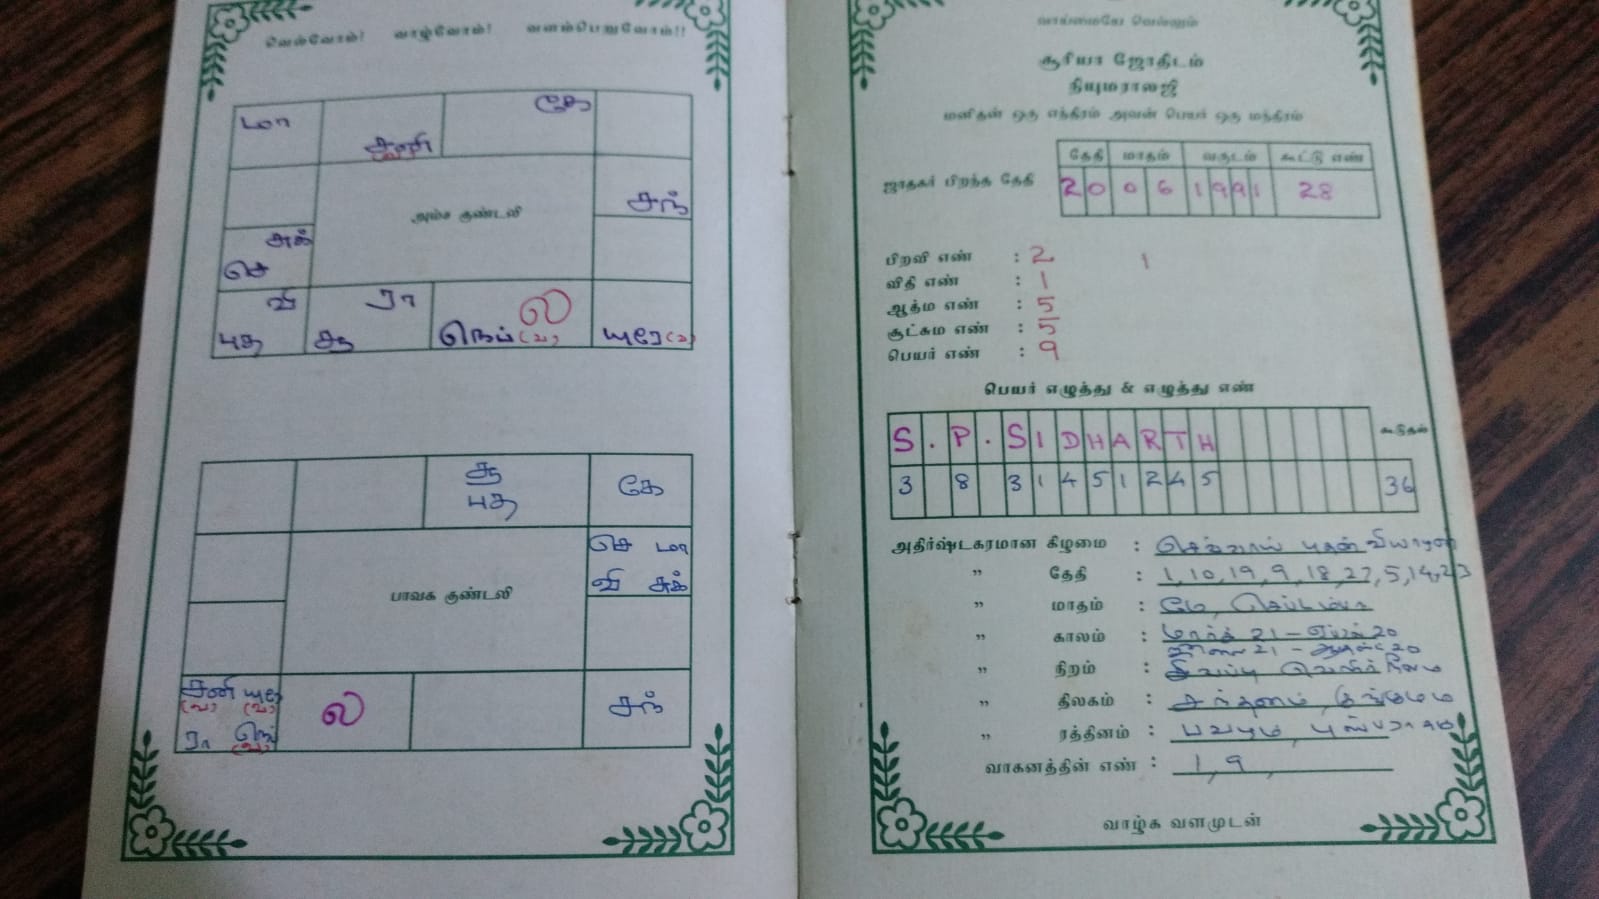 வெல்வோம்! வாழ்வோம்! வளம்பெறுவோம்!!
மா சனி கே
(வ)
அம்ச குண்டலி
சந்
செ
வி ரா ல
புத சூ நெப் (வ) யுரே (வ)
சூ
புத கே
செ மா
வி சுக்
பாவக குண்டலி
சனி யுரே ல சந்
(வ) (வ)
ரா நெப்
(வ)
வாய்மையே வெல்லும்
சூரியா ஜோதிடம்
நியுமராலஜி
மனிதன் ஒரு எந்திரம் அவன் பெயர் ஒரு மந்திரம்
தேதி மாதம் வருடம் கூட்டு எண்
ஜாதகர் பிறந்த தேதி 20 06 1991 28
பிறவி எண் : 2 1
விதி எண் : 1
ஆத்ம எண் : 5
சூட்சும எண் : 5
பெயர் எண் : 9
பெயர் எழுத்து & எழுத்து எண்
S . P . S I D H A R T H கூடுதல்
3 8 3 1 4 5 1 2 4 5 36
அதிர்ஷ்டகரமான கிழமை : செவ்வாய் புதன் வியாழன்
” தேதி : 1, 10, 19, 9, 18, 27, 5, 14, 23
” மாதம் : மே, செப்டம்பர்
” காலம் : மார்ச் 21 - ஏப்ரல் 20
ஜூலை 21 - ஆகஸ்ட் 20
” நிறம் : சிவப்பு வெளிர் நீலம்
” திலகம் : சந்தனம், குங்குமம்
” ரத்தினம் : பவழம், புஸ்பராகம்
வாகனத்தின் எண் : 1, 9,
வாழ்க வளமுடன்